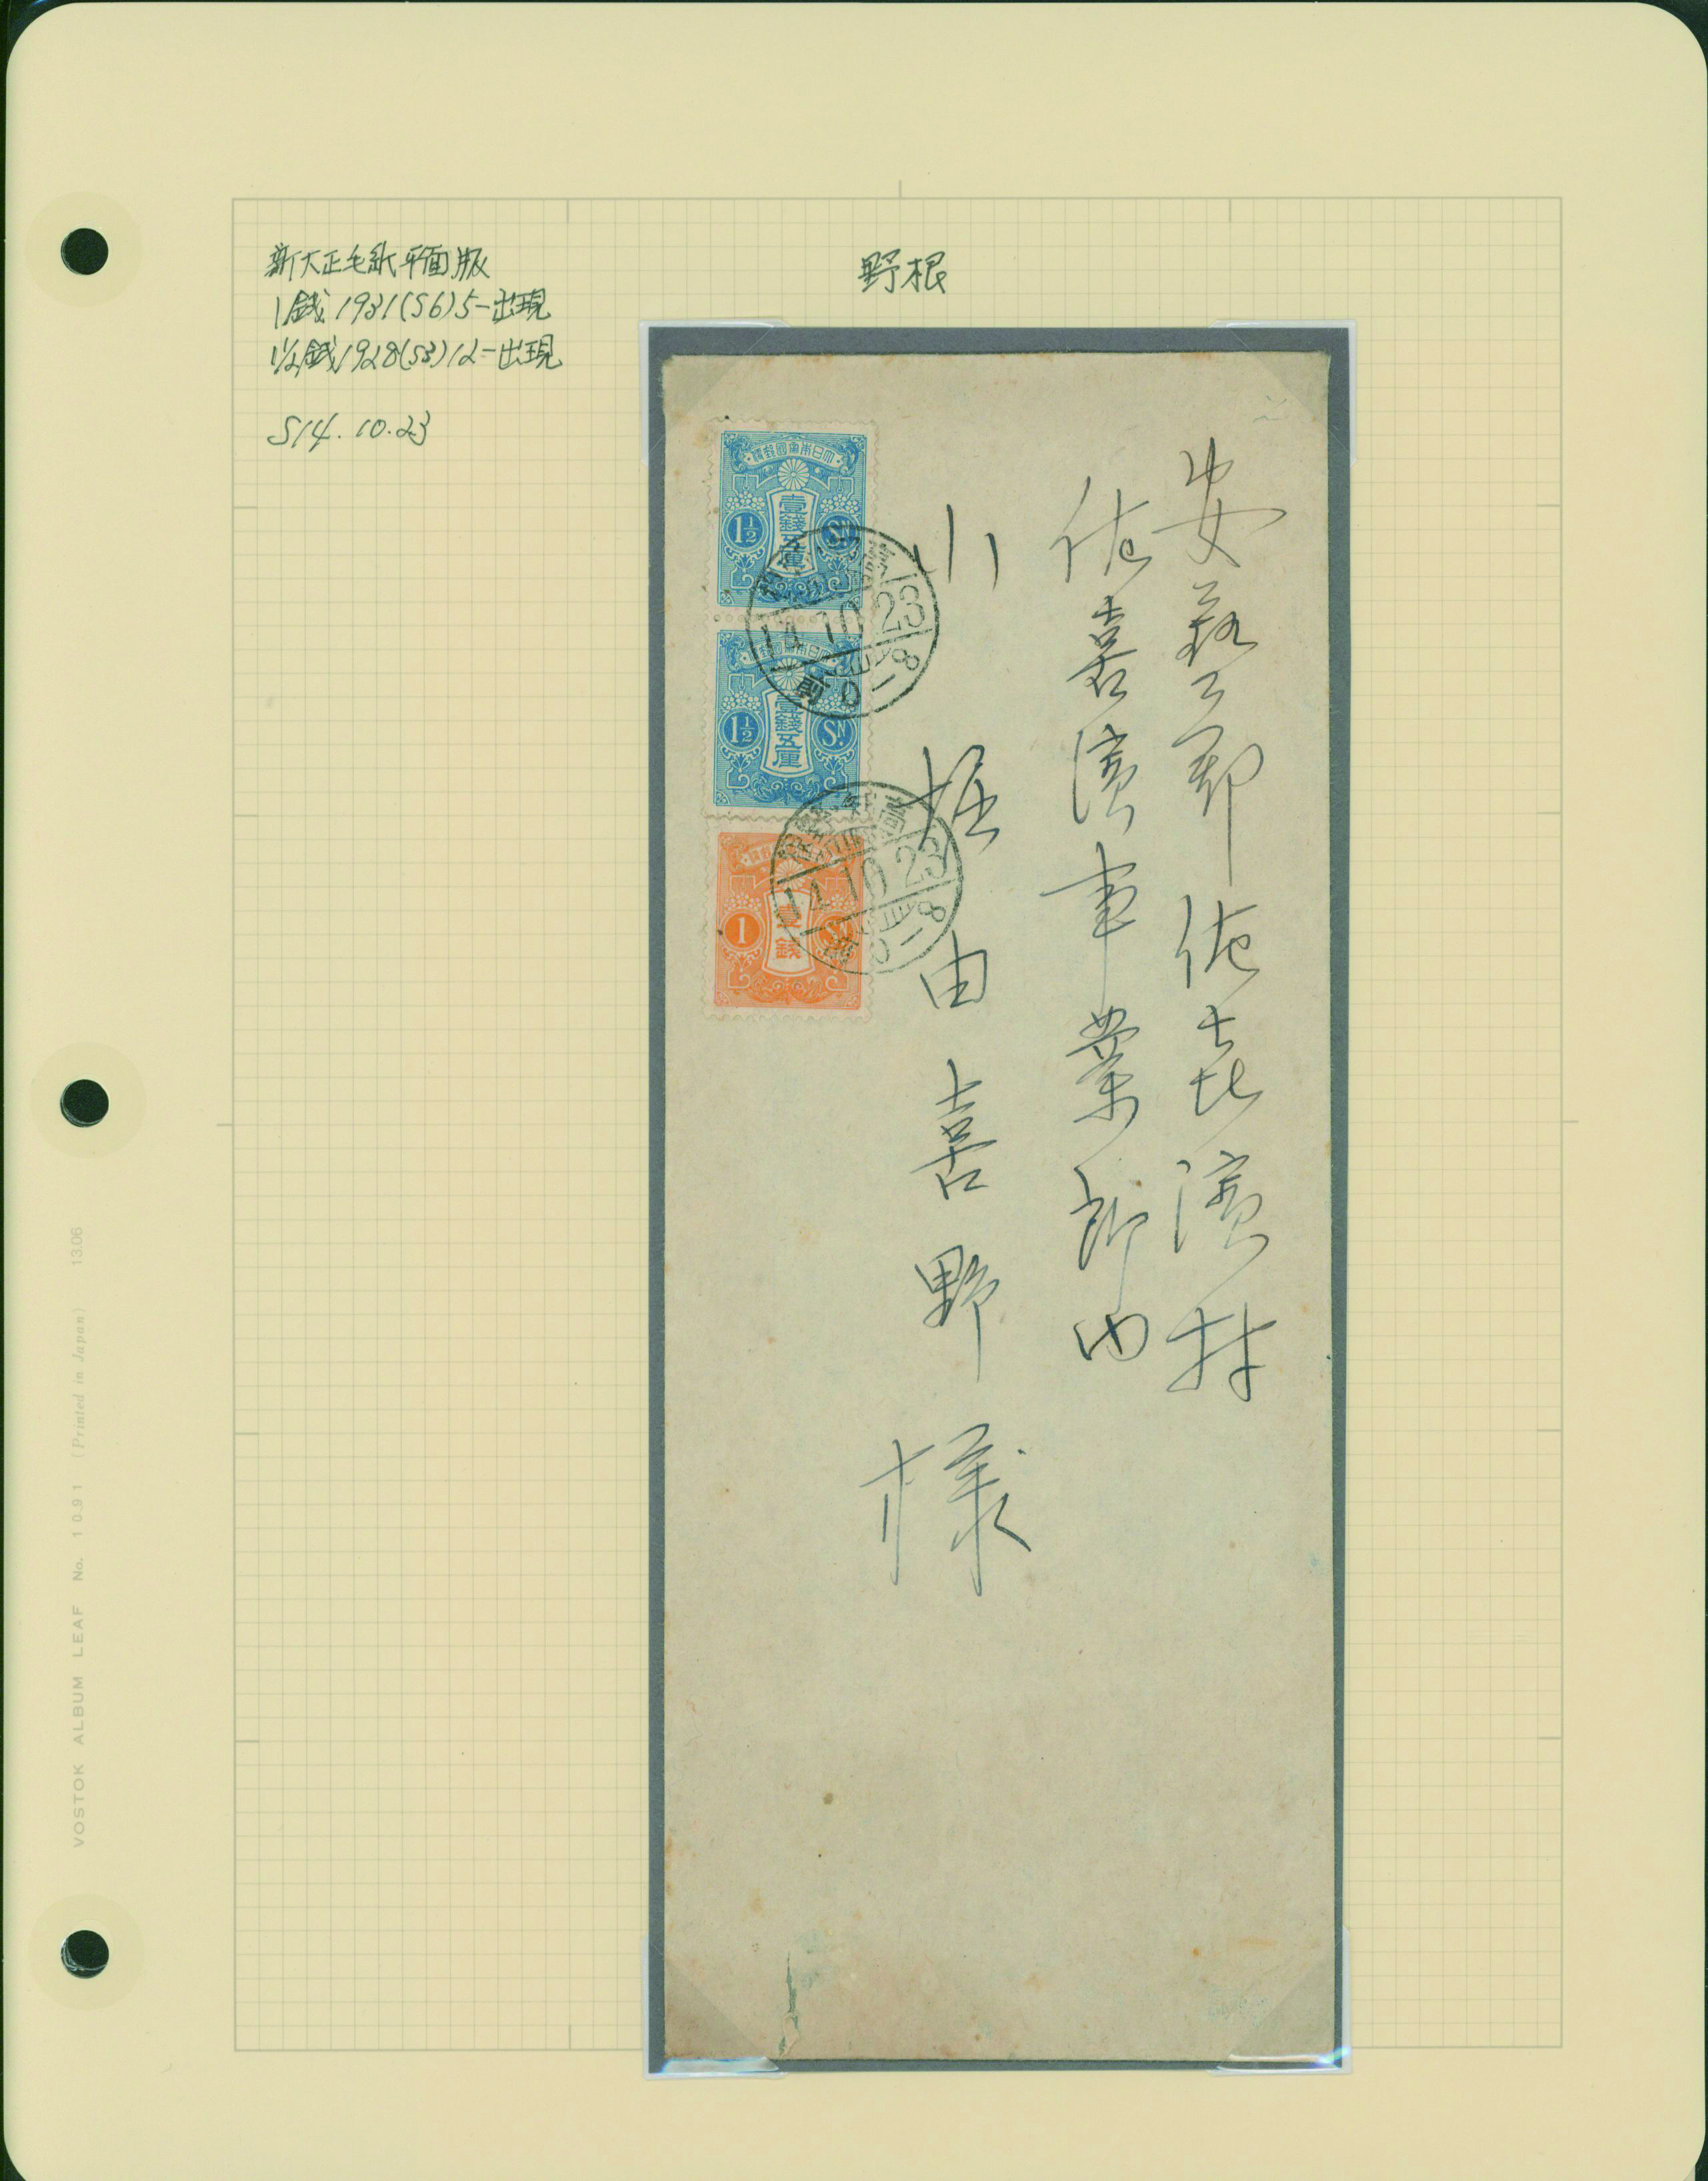 新大正毛紙平面版
1銭 1931(S6)5-出現
1½銭 1928(S3)12-出現
S14.10.23
野根
安芸郡佐喜濱村
佐喜濱事業所内
小
由喜野様
大日本帝國郵便
壹錢五厘
1½ Sn.
14.10.23
前 8-
大日本帝國郵便
壹錢五厘
1½ Sn.
14.10.23
8-
壹錢
1
VOSTOK ALBUM LEAF No. 1091 (Printed in Japan) 13.06